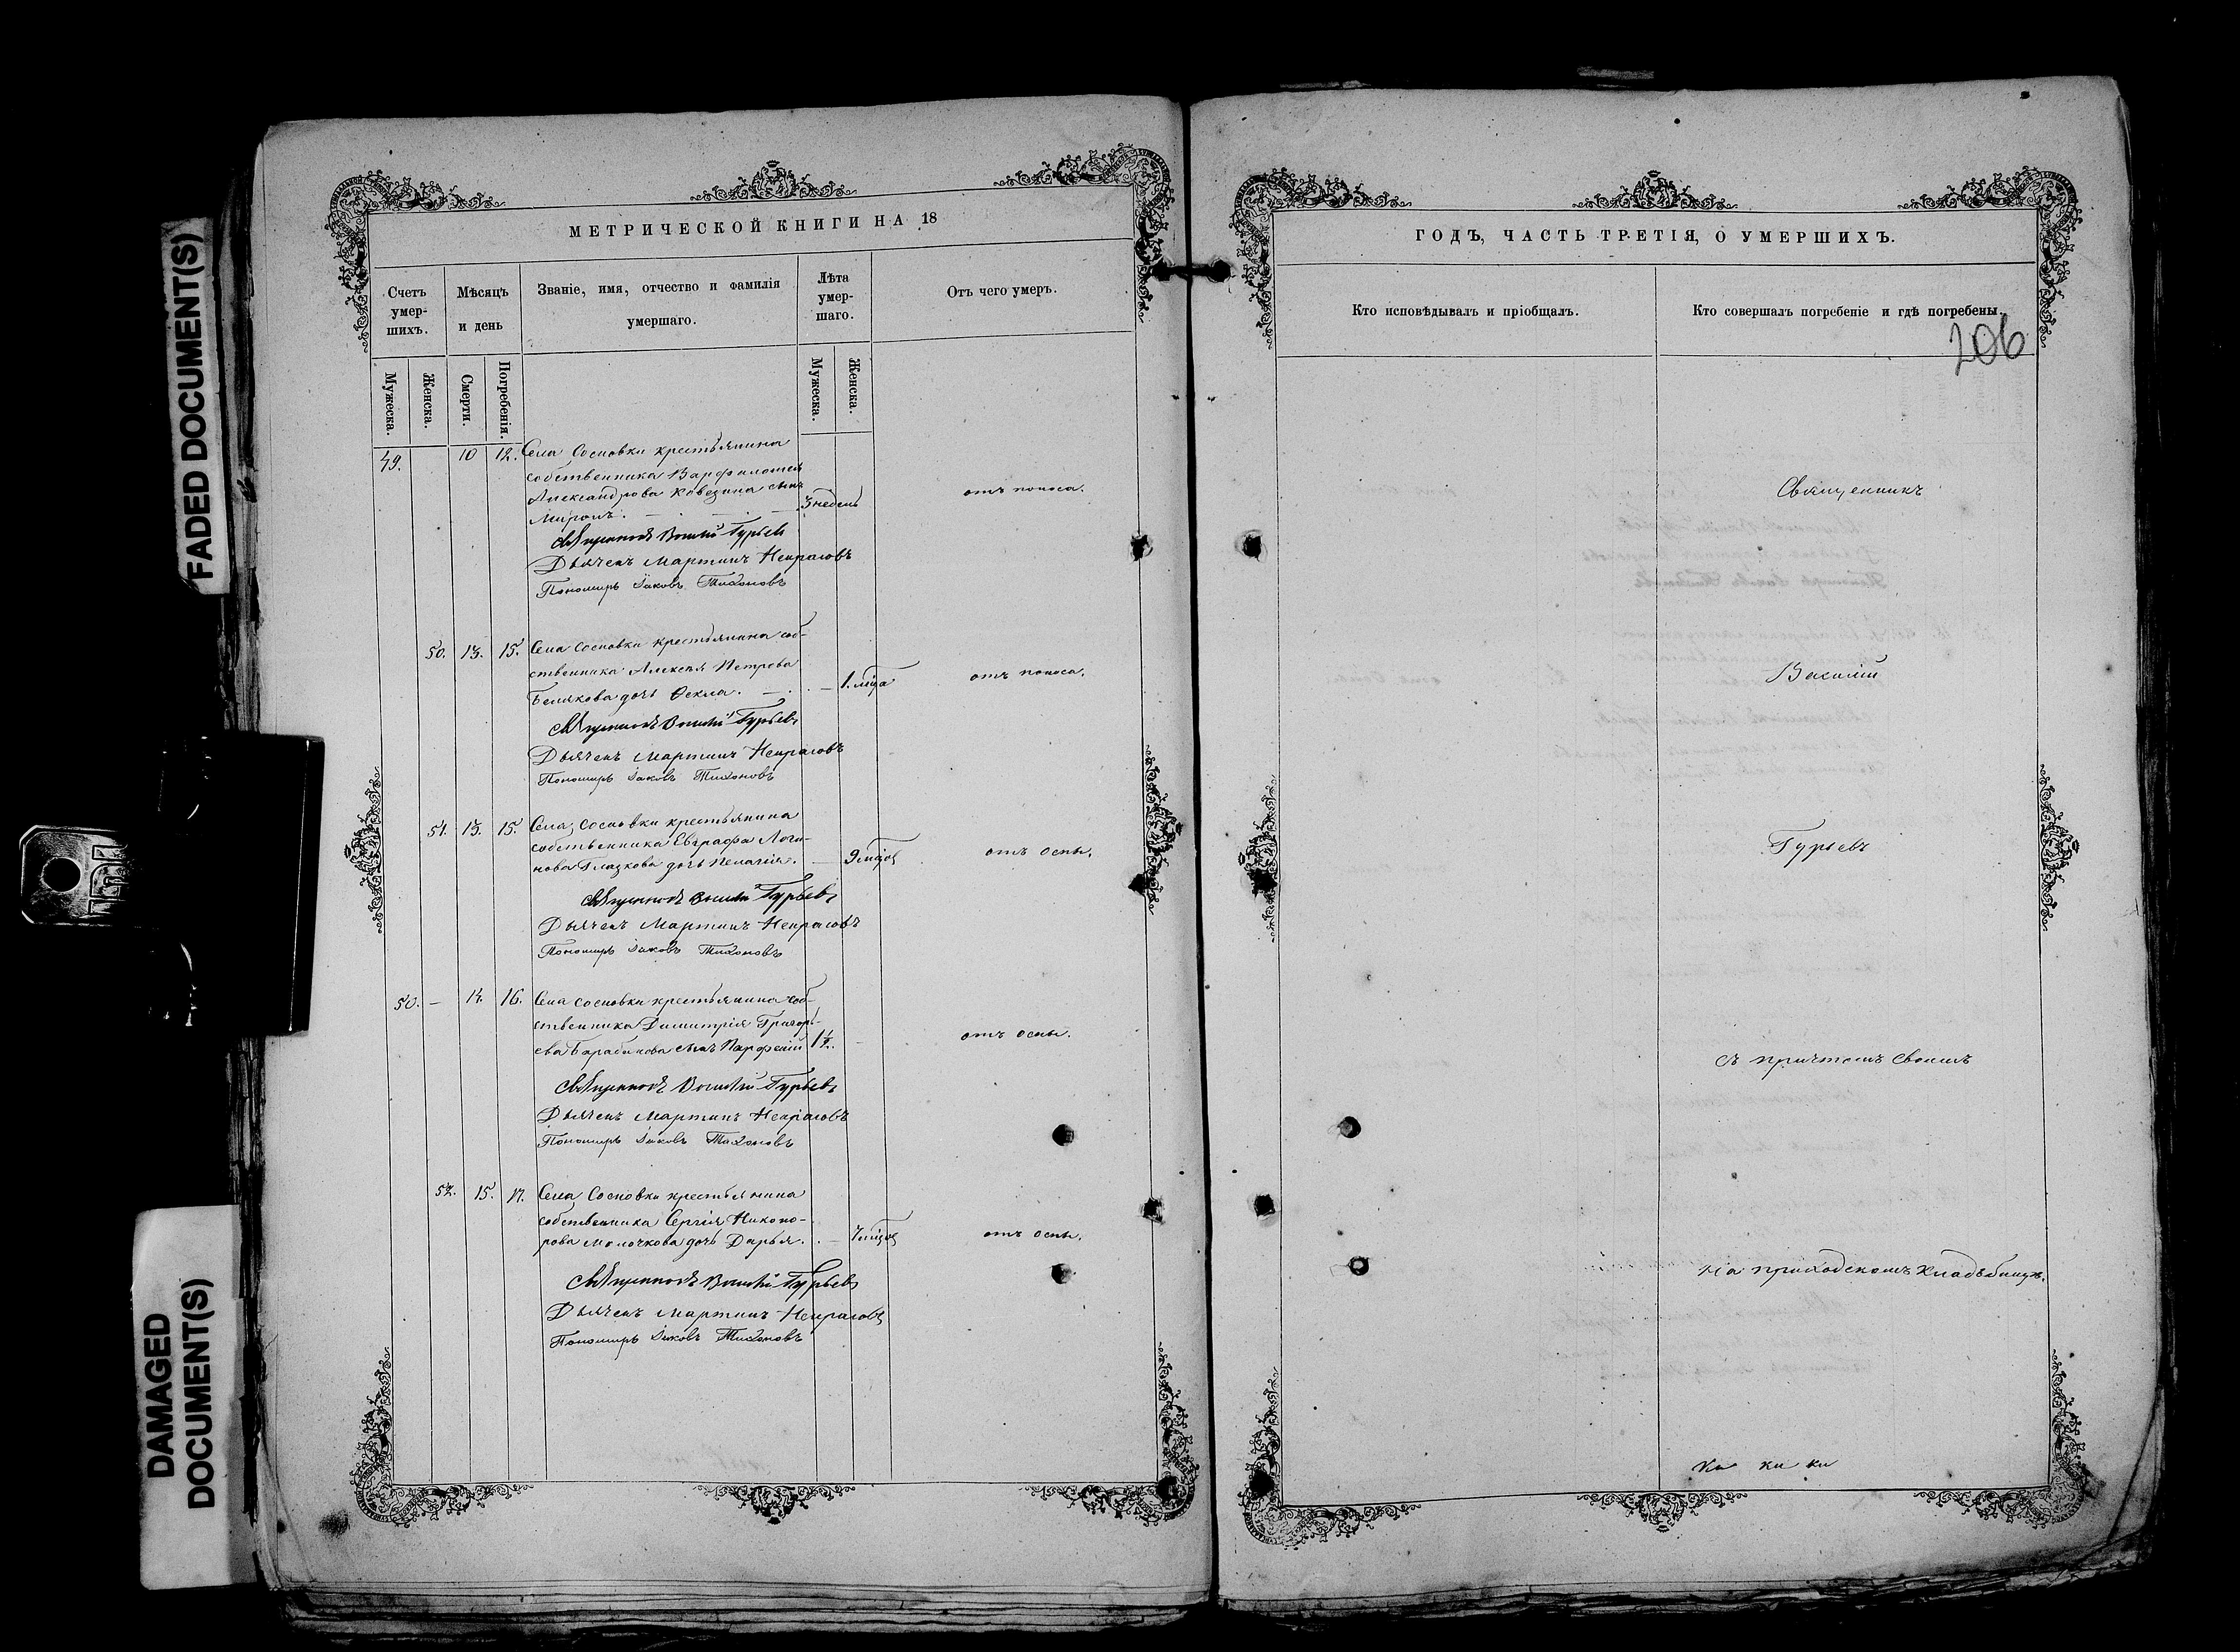 FADED DOCUMENT(S)
DAMAGED
DOCUMENT(S)
МЕТРИЧЕСКОЙ КНИГИ НА 18
Счетъ умер- шихъ.
Мѣсяцъ и день
Званіе, имя, отчество и фамилія умершаго.
Лѣта умер- шаго.
Отъ чего умеръ.
Мужеска.
Женска.
Смерти.
Погребенія.
Мужеска.
Женска.
49. 10 12. Села Сосновки крестьянина
собственника Варфоломея
Александрова сынъ
Миронъ. 3 недель отъ поноса.
Священникъ Василій Гурьевъ
Дьячекъ Мартинъ Некрасовъ
Пономарь Іаковъ Тихоновъ
50. 13. 15. Села Сосновки крестьянина соб-
ственника Алексея Петрова
Белякова дочь Фекла. 1. отъ поноса.
Священникъ Василій Гурьевъ
Дьячекъ Мартинъ Некрасовъ
Пономарь Іаковъ Тихоновъ
51. 13. 15. Села Сосновки крестьянина
собственника Евграфа Логи-
нова Глазкова дочь Пелагія. 9 отъ оспы.
Священникъ Василій Гурьевъ
Дьячекъ Мартинъ Некрасовъ
Пономарь Іаковъ Тихоновъ
50. – 14. 16. Села Сосновки крестьянина соб-
ственника Димитрія Григорь-
ева сынъ Парфеній отъ оспы.
Священникъ Василій Гурьевъ
Дьячекъ Мартинъ Некрасовъ
Пономарь Іаковъ Тихоновъ
52. 15. 17. Села Сосновки крестьянина
собственника Сергія Никоно-
рова Молочкова дочь Дарья. отъ оспы.
Священникъ Василій Гурьевъ
Дьячекъ Мартинъ Некрасовъ
Пономарь Іаковъ Тихоновъ
ГОДЪ, ЧАСТЬ ТРЕТІЯ, О УМЕРШИХЪ.
Кто исповѣдывалъ и пріобщалъ.
Кто совершалъ погребеніе и гдѣ погребены.
206
Священникъ
Василій
Гурьевъ
съ причтомъ своимъ
На приходскомъ кладбищѣ.